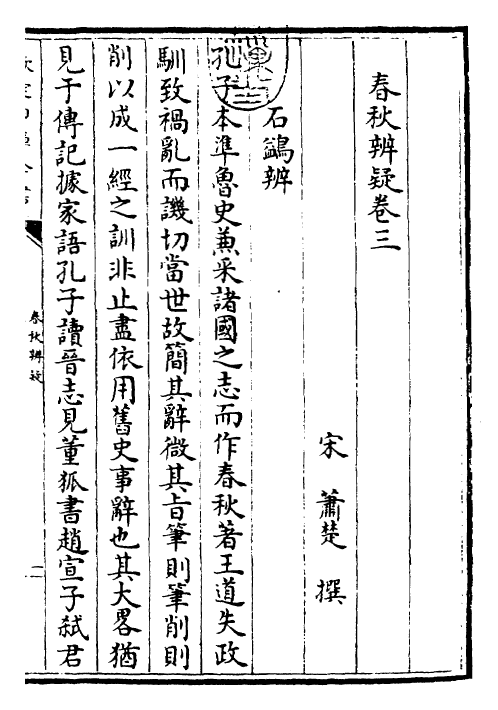 春秋辨疑卷三
宋 蕭楚 撰
石鷁辨
孔子本準魯史兼采諸國之志而作春秋著王道失政
馴致禍亂而譏切當世故簡其辭微其旨筆則筆削則
削以成一經之訓非止盡依用舊史事辭也其大畧猶
見于傳記據家語孔子讀晉志見董狐書趙宣子弑君
春秋辨疑